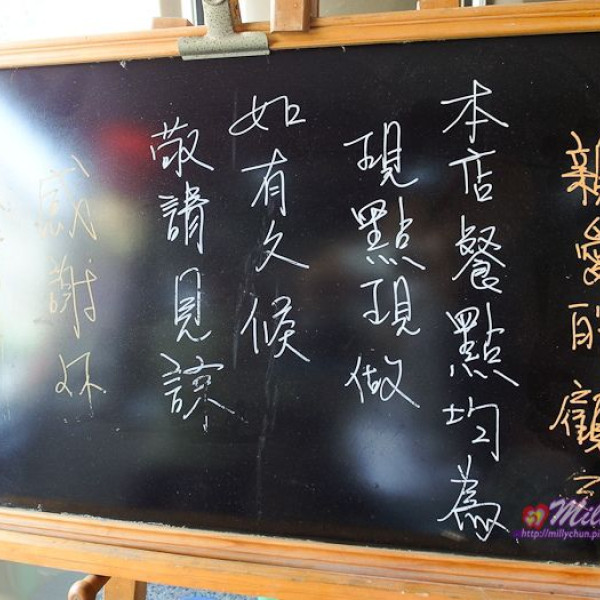 親愛的顧
本店餐點均為
現點現做
如有久候
敬請見諒
感謝妳
Mil
http://millychun.pi